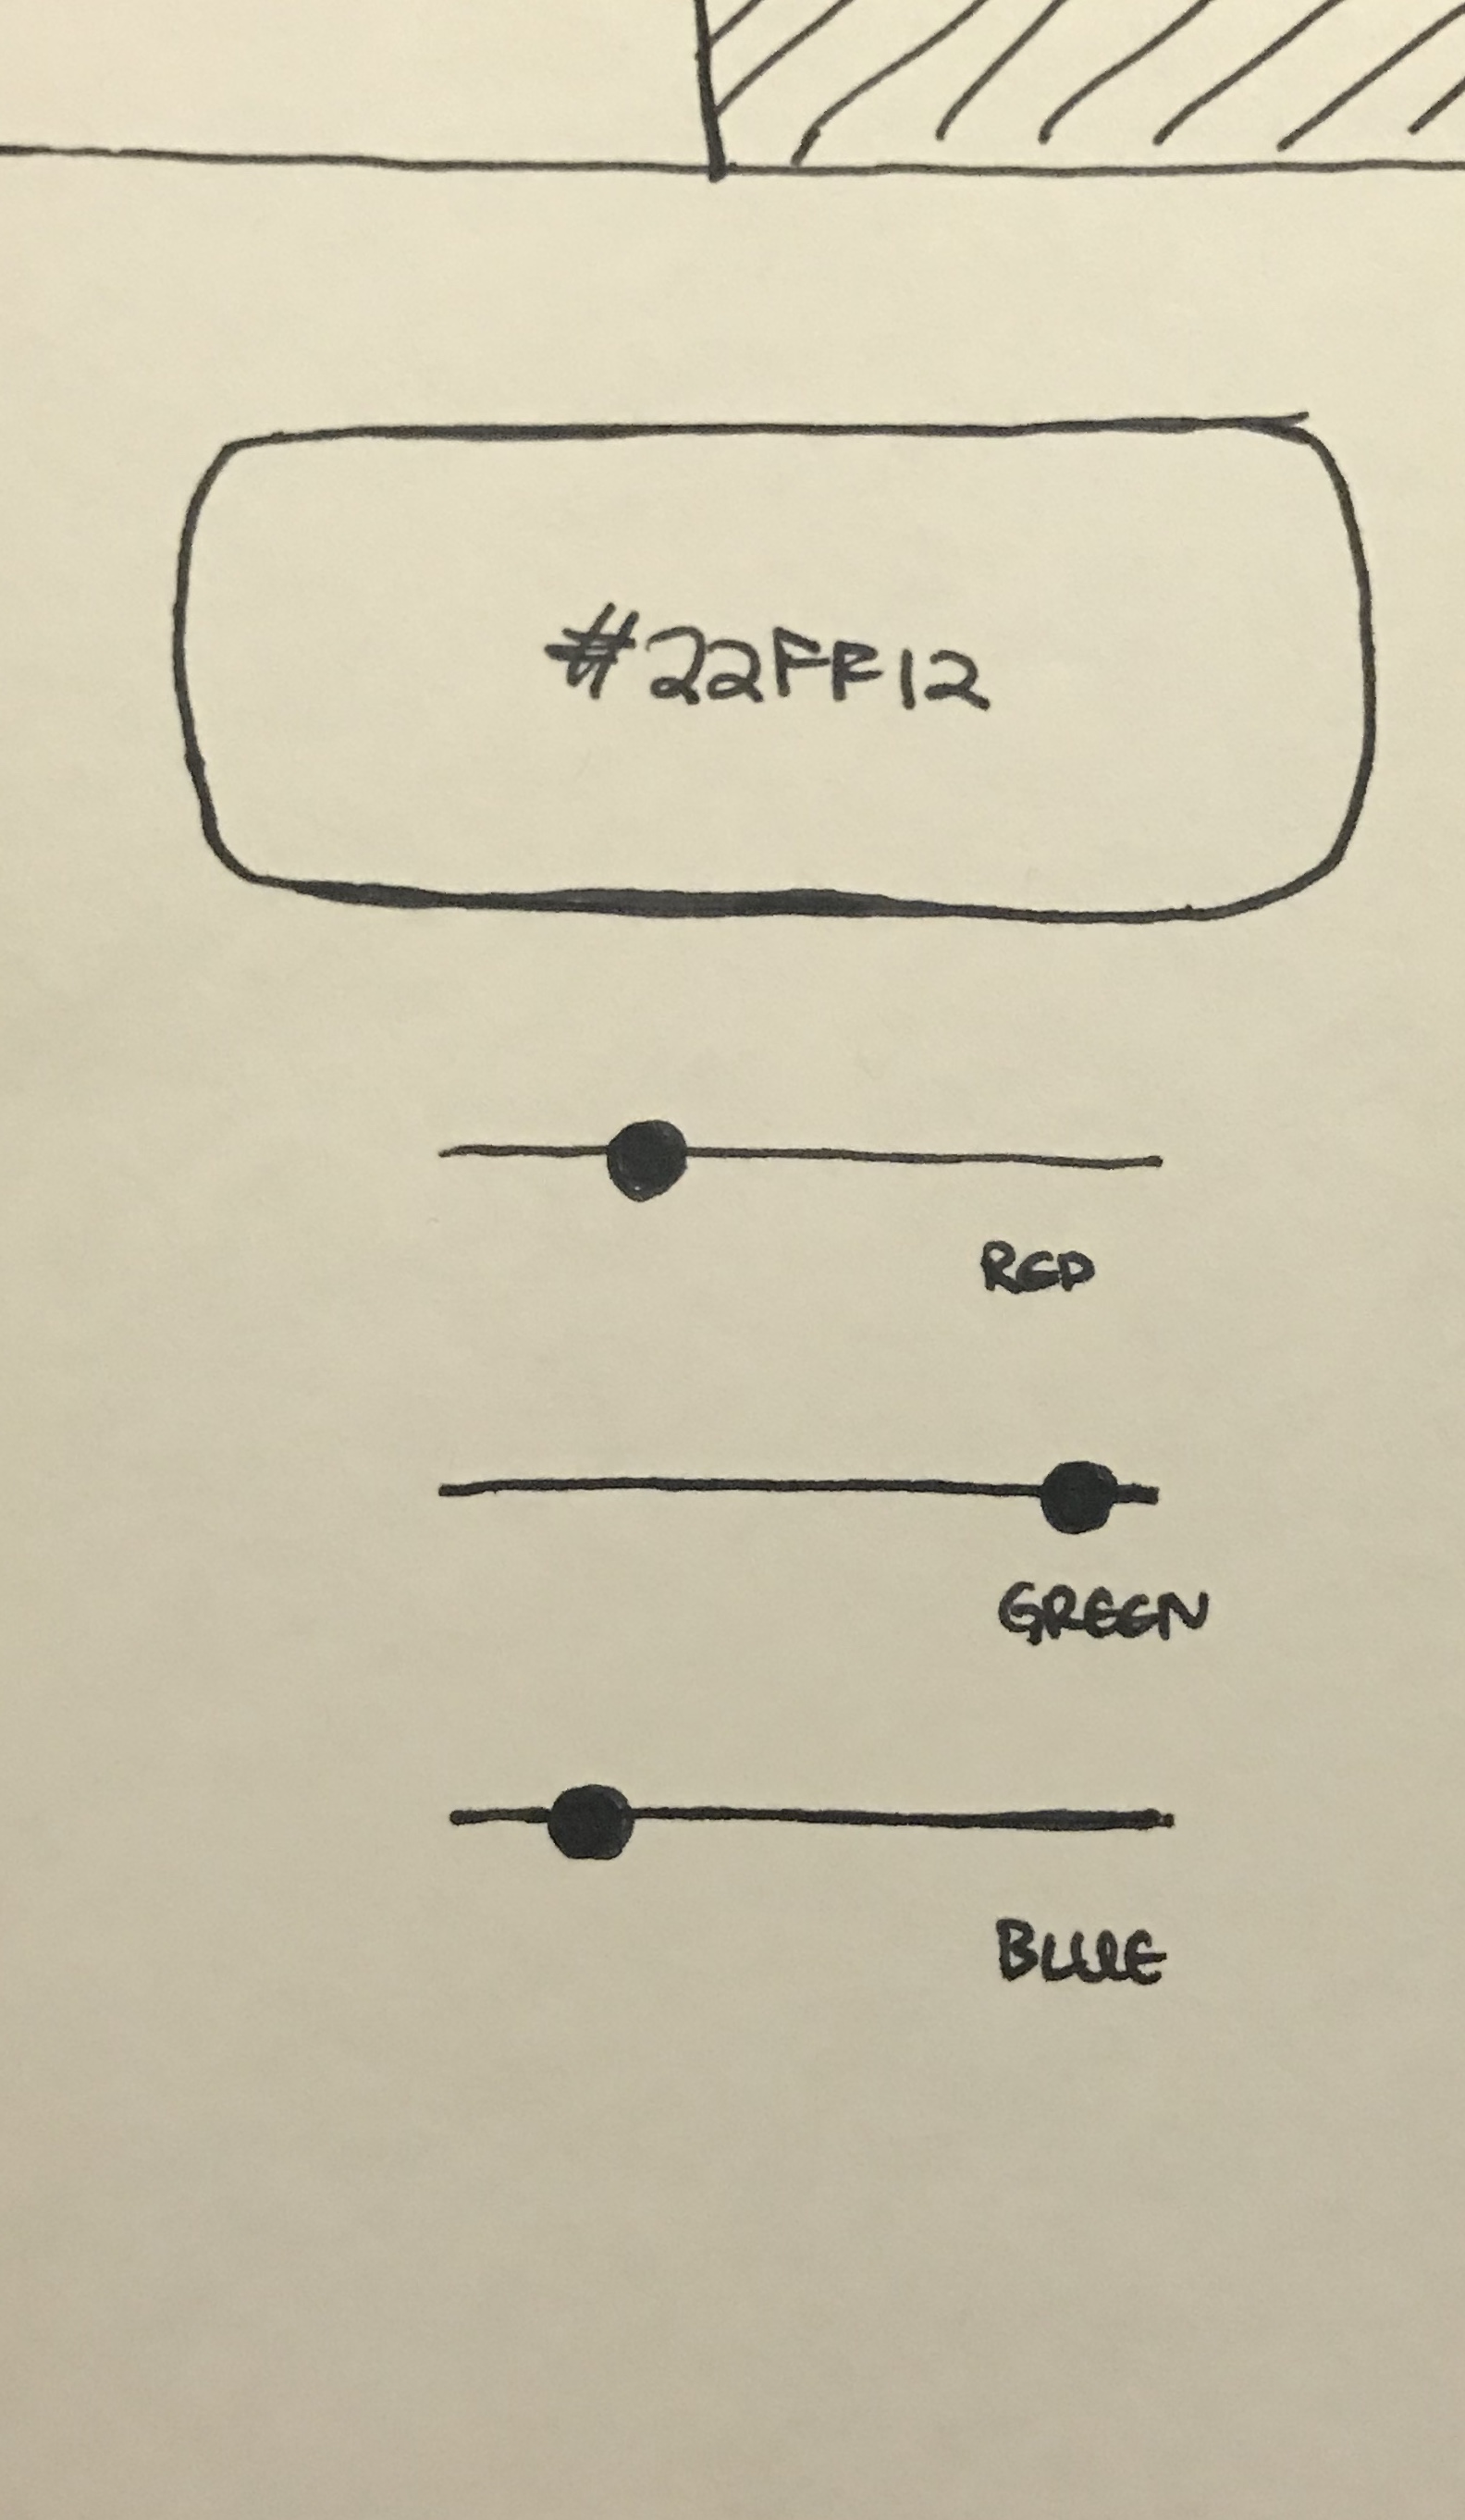 #22FF12
RED
GREEN
BLUE